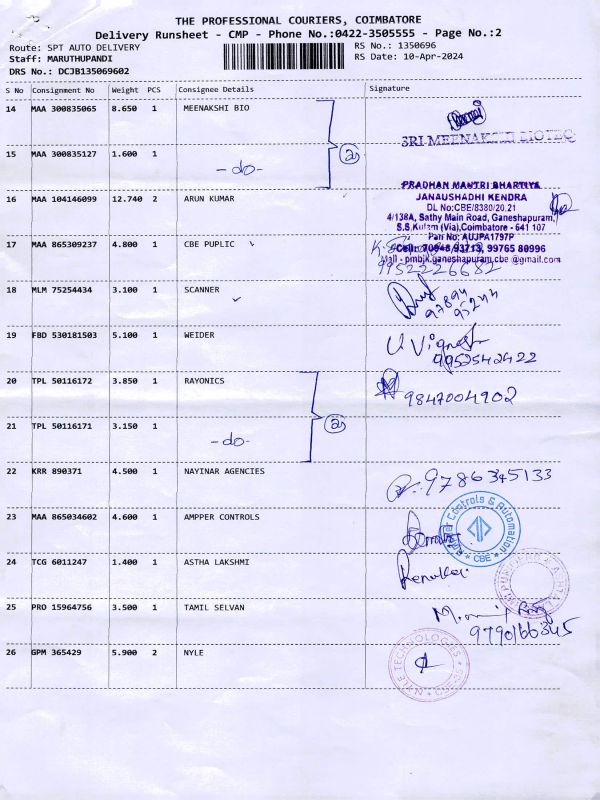 THE PROFESSIONAL COURIERS, COIMBATORE
Delivery Runsheet - CMP - Phone No.:0422-3505555 - Page No.:2
Route: SPT AUTO DELIVERY RS No.: 1350696
Staff: MARUTHUPANDI RS Date: 10-Apr-2024
DRS No.: DCJB135069602
S No Consignment No Weight PCS Consignee Details Signature
14 MAA 300835065 8.650 1 MEENAKSHI BIO
SRI MEENAKSHI BIOTEC
15 MAA 300835127 1.600 1 -do- 2
PRADHAN MANTRI BHARTIYA
16 MAA 104146099 12.740 2 ARUN KUMAR JANAUSHADHI KENDRA
DL No:CBE/8380/20,21
4/138A, Sathy Main Road, Ganeshapuram,
S.S.Kulam (Via),Coimbatore - 641 107
Pan No: AUJPA1797P
17 MAA 865309237 4.800 1 CBE PUPLIC Cell: 70948 93713, 99765 80996
Mail - pmbjk.ganeshapuram.cbe @gmail.com
9952226682
18 MLM 75254434 3.100 1 SCANNER 97894
95244
19 FBD 530181503 5.100 1 WEIDER U. Vignesh
9952542422
20 TPL 50116172 3.850 1 RAYONICS 9847004902
21 TPL 50116171 3.150 1 -do- 2
22 KRR 890371 4.500 1 NAYINAR AGENCIES 9786345133
23 MAA 865034602 4.600 1 AMPPER CONTROLS Controls & Automation
* CBE *
24 TCG 6011247 1.400 1 ASTHA LAKSHMI Renuka
25 PRO 15964756 3.500 1 TAMIL SELVAN
9790166345
26 GPM 365429 5.900 2 NYLE NYLE TECHNOLOGIES